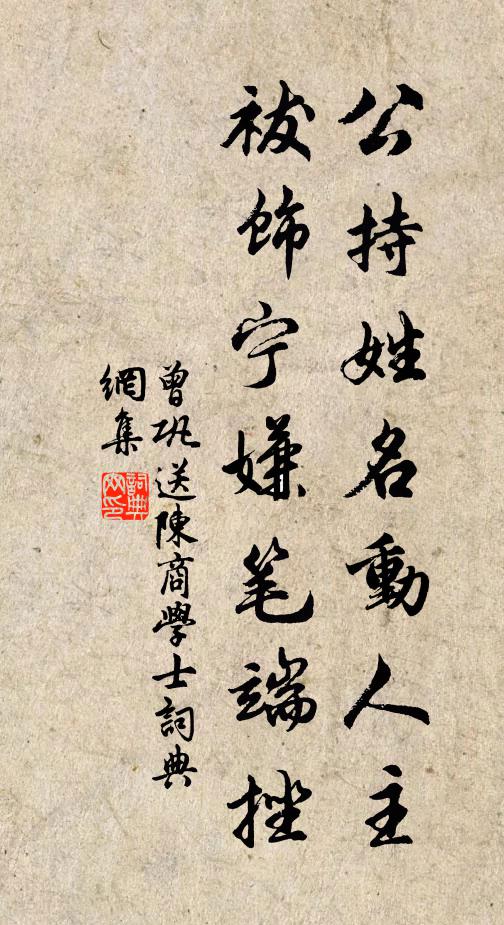 公持姓名動人主
祓飾宁嫌笔端挫
曾巩送陳商學士詞典
網集
詞典
网印